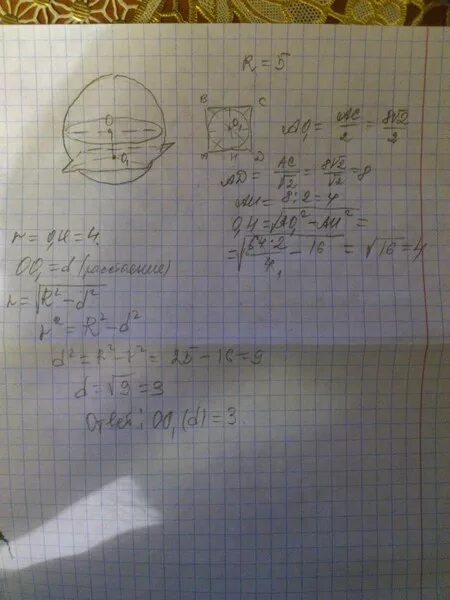 R = 5
O
O₁
B C
O₁
A H D
AO₁ = AC/2 = 8√2/2
AD = AC/√2 = 8√2/√2 = 8
AH = 8:2 = 4
O₁H = √(AO₁² - AH²) =
= √(64·2/4 - 16) = √16 = 4
r = O₁H = 4.
OO₁ = d (расстояние)
r = √(R² - d²)
r² = R² - d²
d² = R² - r² = 25 - 16 = 9
d = √9 = 3
Ответ: OO₁ (d) = 3.